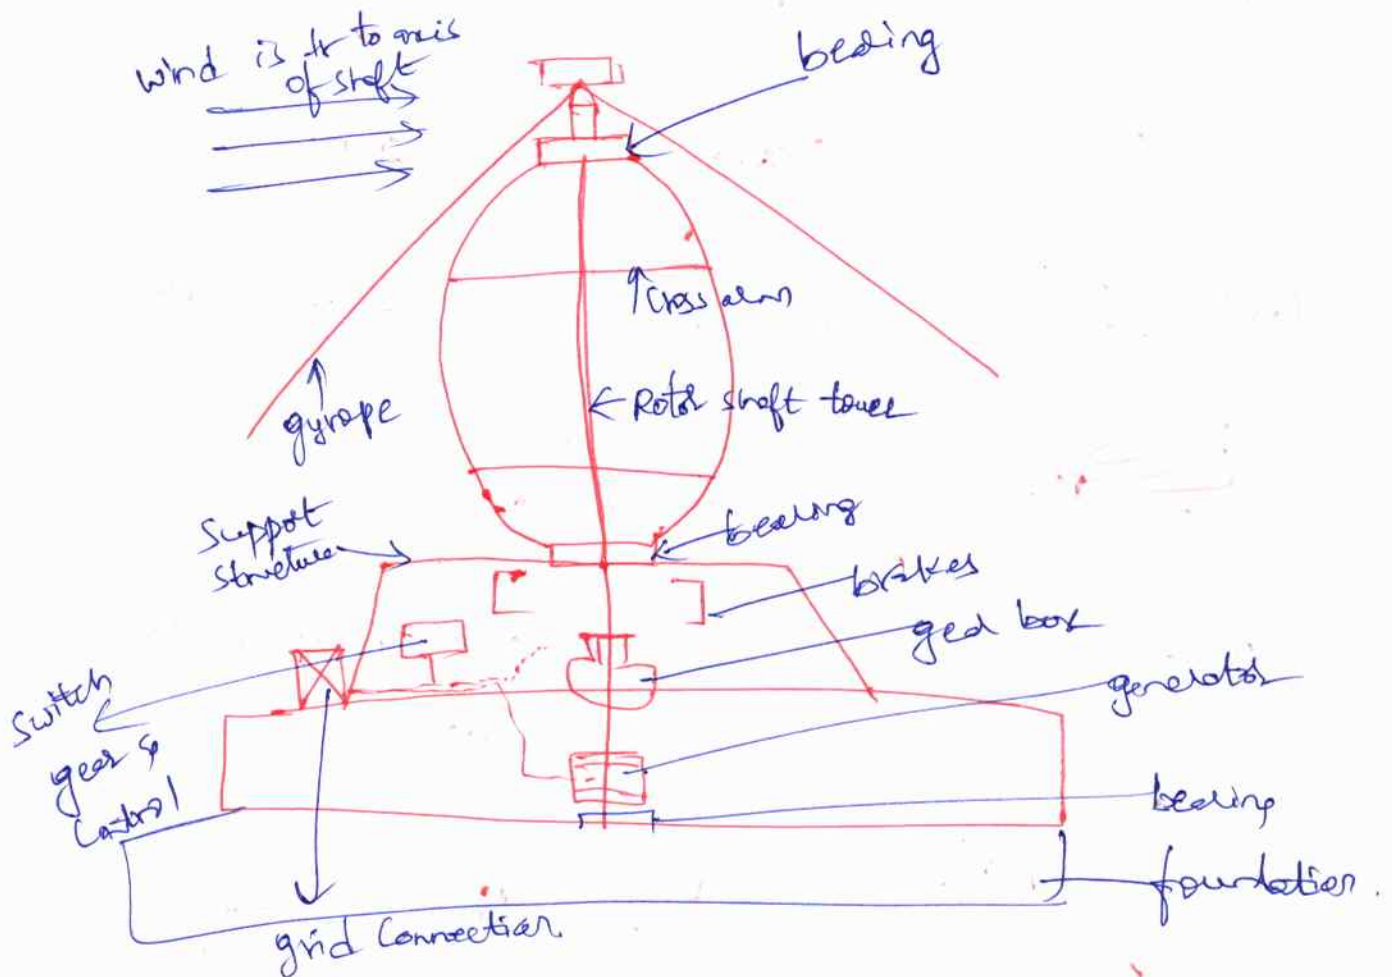 wind is ⊥r to axis
of shaft
bearing
cross arm
gyrope
Rotor shaft tower
Support
structure
bearing
brakes
gear box
generator
Switch
gear &
Control
bearing
foundation.
grid Connection